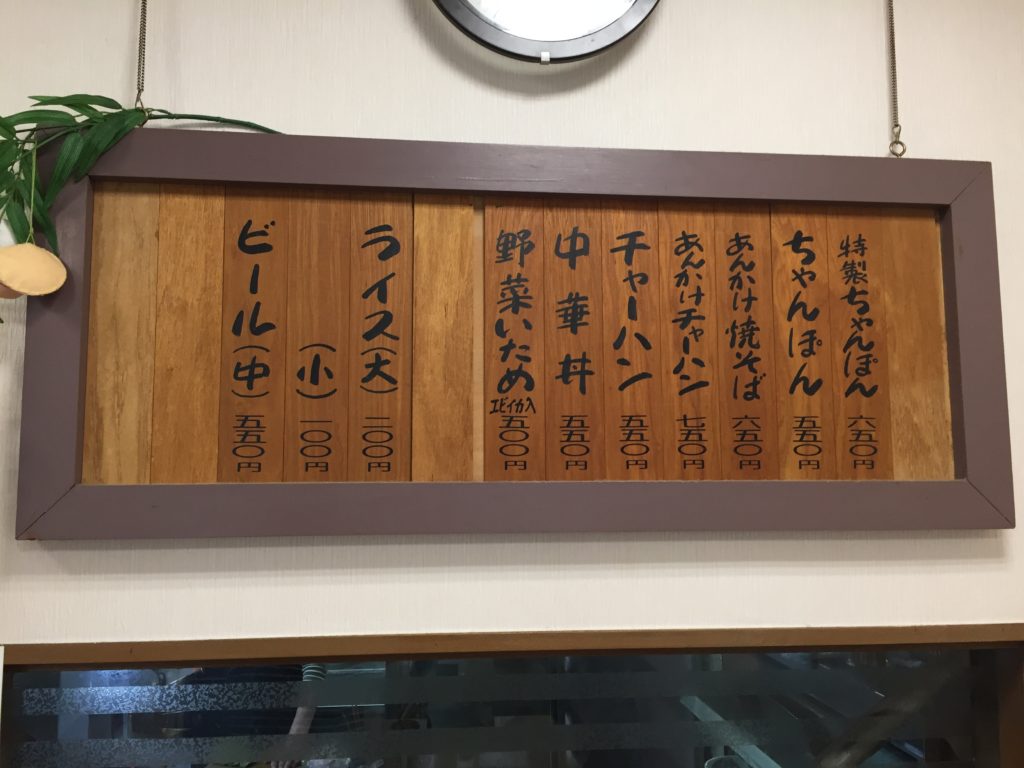 特製ちゃんぽん 六五〇円
ちゃんぽん 五五〇円
あんかけ焼そば 六五〇円
あんかけチャーハン 七五〇円
チャーハン 五五〇円
中華丼 五五〇円
野菜いため エビイカ入 五〇〇円
ライス(大) 二〇〇円
(小) 一〇〇円
ビール(中) 五五〇円